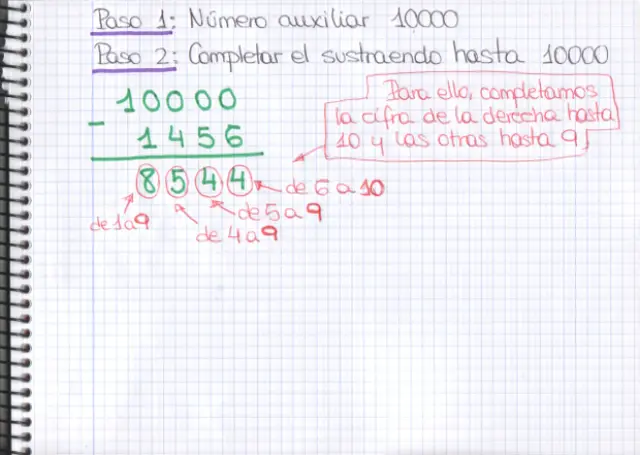 Paso 1: Número auxiliar 10000
Paso 2: Completar el sustraendo hasta 10000
10000
Para ello, completamos
la cifra de la derecha hasta
10 y las otras hasta 9
- 1456
8544
de 6 a 10
de 5 a 9
de 1 a 9
de 4 a 9